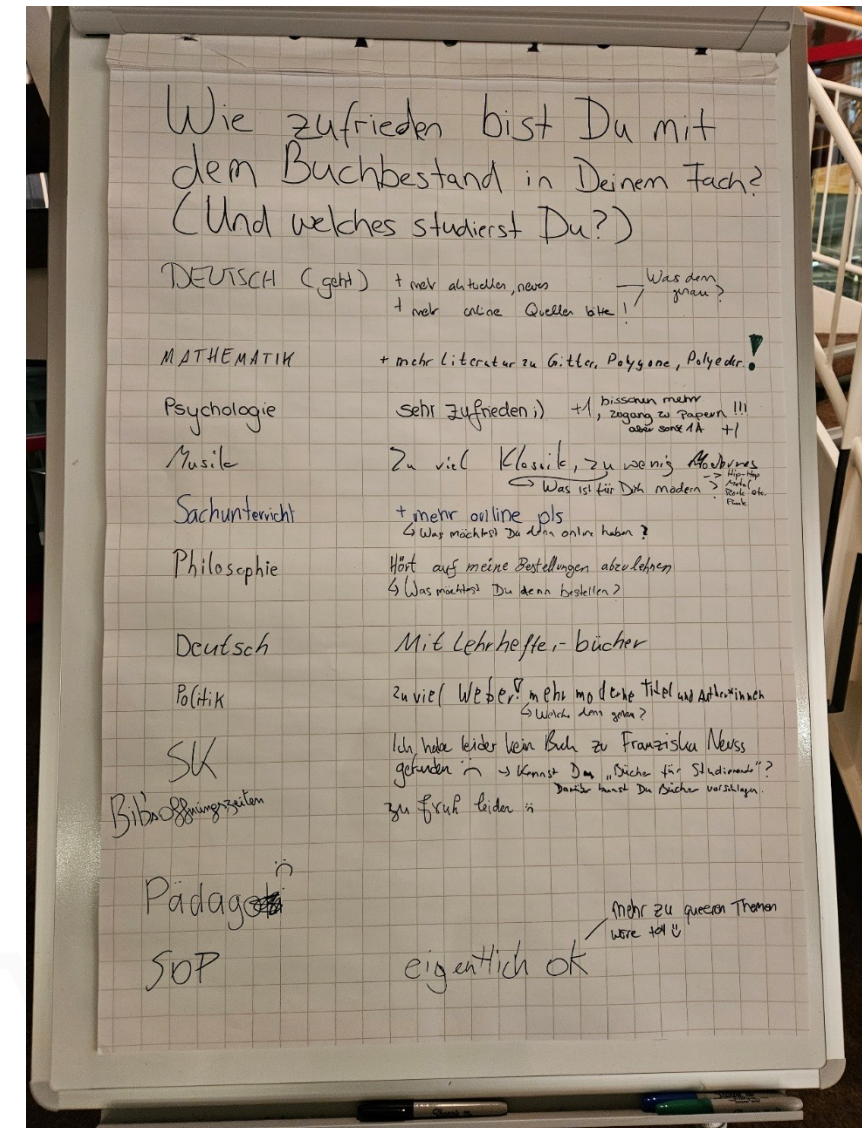 Wie zufrieden bist Du mit
dem Buchbestand in Deinem Fach?
(Und welches studierst Du?)
DEUTSCH (geht) + mehr aktuelles, neues
+ mehr online Quellen bitte !
Was denn
genau?
MATHEMATIK + mehr Literatur zu Gitter, Polygone, Polyeder. !
Psychologie sehr zufrieden ;) +1, bisschen mehr
zugang zu Papern !!!
aber sonst 1A +1
Musik Zu viel Klassik, zu wenig Modernes
Was ist für Dich modern? → Hip-Hop
Metal
Rock etc.
Punk
Sachunterricht + mehr online pls
↳ Was möchtest Du denn online haben?
Philosophie Hört auf meine Bestellungen abzulehnen
↳ Was möchtest Du denn bestellen?
Deutsch Mit Lehrhefte, -bücher
Politik zu viel Weber! mehr moderne Titel und Author*innen
↳ Welche denn genau?
SK Ich habe leider kein Buch zu Franziska
gefunden :( → Kennst Du „Bücher für Studierende"?
Darüber kannst Du Bücher vorschlagen.
Bib's Öffnungszeiten zu früh leider :(
Pädag
SOP eigentlich ok
mehr zu queeren Themen
wäre toll